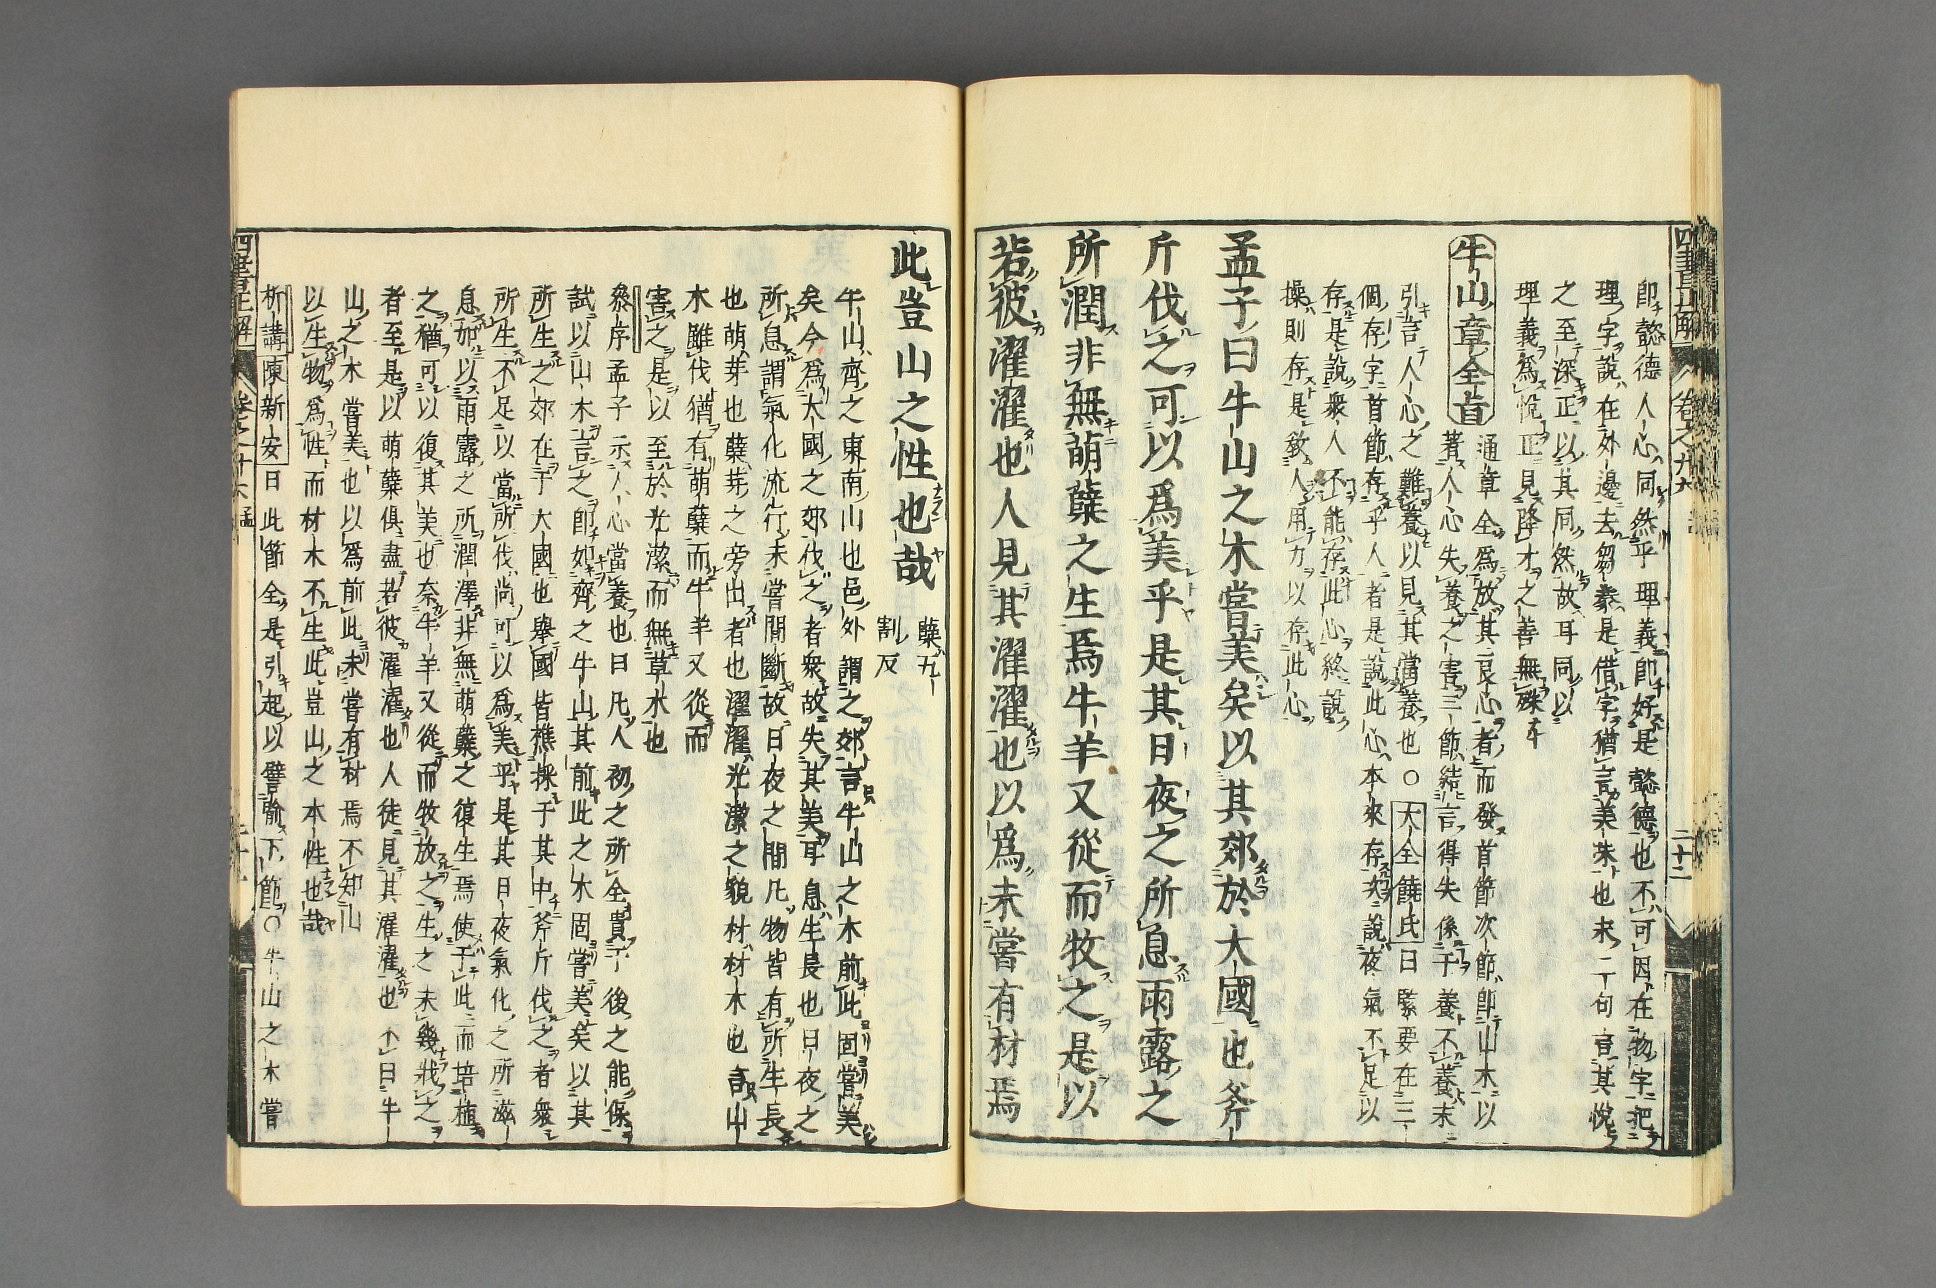 四書正解
卷之十六
二十二
即懿德人心同然乎理義即好是懿德也不可因在物字把
理字說在外邊去芻豢是借字猶言美味也末二句言其悅
之至深正以其同然故耳同以
理義爲悅正見降才之善無殊
牛山章全旨
通章全爲放其良心者而發首節次節即山木以
著人心失養之害三節結言得失係于養不養末
引言人心之難養以見其當養也○大全饒氏曰緊要在三
個存字首節存乎人者是說此心本來存次說夜氣不足以
存是說衆人不能存此心終說
操則存是敎人用力以存此心
孟子曰牛山之木嘗美矣以其郊於大國也斧
斤伐之可以爲美乎是其日夜之所息雨露之
所潤非無萌蘖之生焉牛羊又從而牧之是以
若彼濯濯也人見其濯濯也以爲未嘗有材焉
此豈山之性也哉
蘖五
割反
牛山齊之東南山也邑外謂之郊言牛山之木前此固嘗美
矣今爲大國之郊伐之者衆故失其美耳息生長也日夜之
所息謂氣化流行未嘗間斷故日夜之間凡物皆有所生長
也萌芽也蘖芽之旁出者也濯濯光潔之貌材材木也言山
木雖伐猶有萌蘖而牛羊又從而
害之是以至於光潔而無草木也
叅序孟子示人心當養也曰凡人初之所全貴于後之能保
試以山木言之即如齊之牛山其前此之木固嘗美矣以其
所生之郊在于大國也舉國皆樵採于其中斧斤伐之者衆
所生不足以當所伐尚可以爲美乎是其日夜氣化之所滋
息加以雨露之所潤澤非無萌蘖之復生焉使于此而培植
之猶可以復其美也奈牛羊又從而牧放之生之未幾戕之
者至是以萌蘖俱盡若彼濯濯也人徒見其濯濯也不曰牛
山之木嘗美也以爲前此未嘗有材焉不知山
以生物爲性而材木不生此豈山之本性也哉
析講陳新安曰此節全是引起以譬喻下節○牛山之木嘗
四書正解
卷之十六